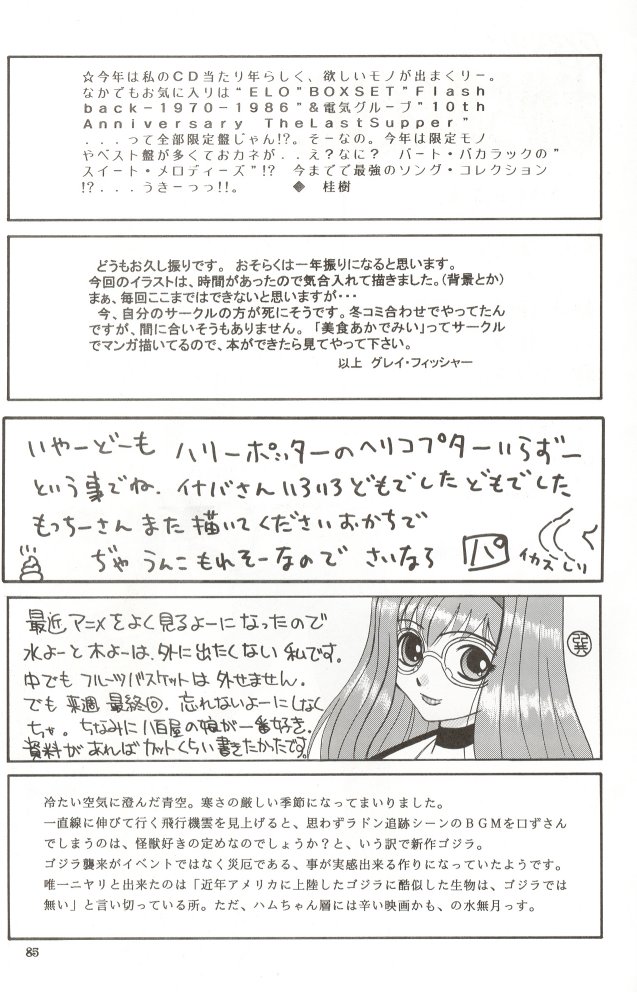 ☆今年は私のCD当たり年らしく、欲しいモノが出まくりー。
なかでもお気に入りは“ELO”BOXSET”Flash
back-1970-1986”&電気グループ”10th
Anniversary TheLastSupper”
...って全部限定盤じゃん!?。そーなの。今年は限定モノ
やベスト盤が多くておカネが..え?なに? バート・バカラックの”
スイート・メロディーズ”!? 今までで最強のソング・コレクション
!?...うきーっっ!!。 ◆ 桂樹
どうもお久し振りです。 おそらくは一年振りになると思います。
今回のイラストは、時間があったので気合入れて描きました。(背景とか)
まぁ、毎回ここまではできないと思いますが・・・
今、自分のサークルの方が死にそうです。冬コミ合わせでやってたん
ですが、間に合いそうもありません。「美食あかでみい」ってサークル
でマンガ描いてるので、本ができたら見てやって下さい。
以上 グレイ・フィッシャー
いやーどーも ハリーポッターのヘリコプターいらずー
という事でね. イナバさんいろいろどもでした どもでした
もっちーさん また 描いてくださいおかちで
ぢゃ うんこもれそーなので さいなら パ イカズしり
最近アニメをよく見るよーになったので
水よーと木よーは、外に出たくない 私です。
中でもフルーツバスケットは外せません.
でも 来週 最終回. 忘れないよーにしなく
ちゃ。ちなみに八百屋の娘が一番好き.
資料があればカットくらい書きたかったです。
冷たい空気に澄んだ青空。寒さの厳しい季節になってまいりました。
一直線に伸びて行く飛行機雲を見上げると、思わずラドン追跡シーンのBGMを口ずさん
でしまうのは、怪獣好きの定めなのでしょうか?と、いう訳で新作ゴジラ。
ゴジラ襲来がイベントではなく災厄である、事が実感出来る作りになっていたようです。
唯一ニヤリと出来たのは「近年アメリカに上陸したゴジラに酷似した生物は、ゴジラでは
無い」と言い切っている所。ただ、ハムちゃん層には辛い映画かも、の水無月っす。
85